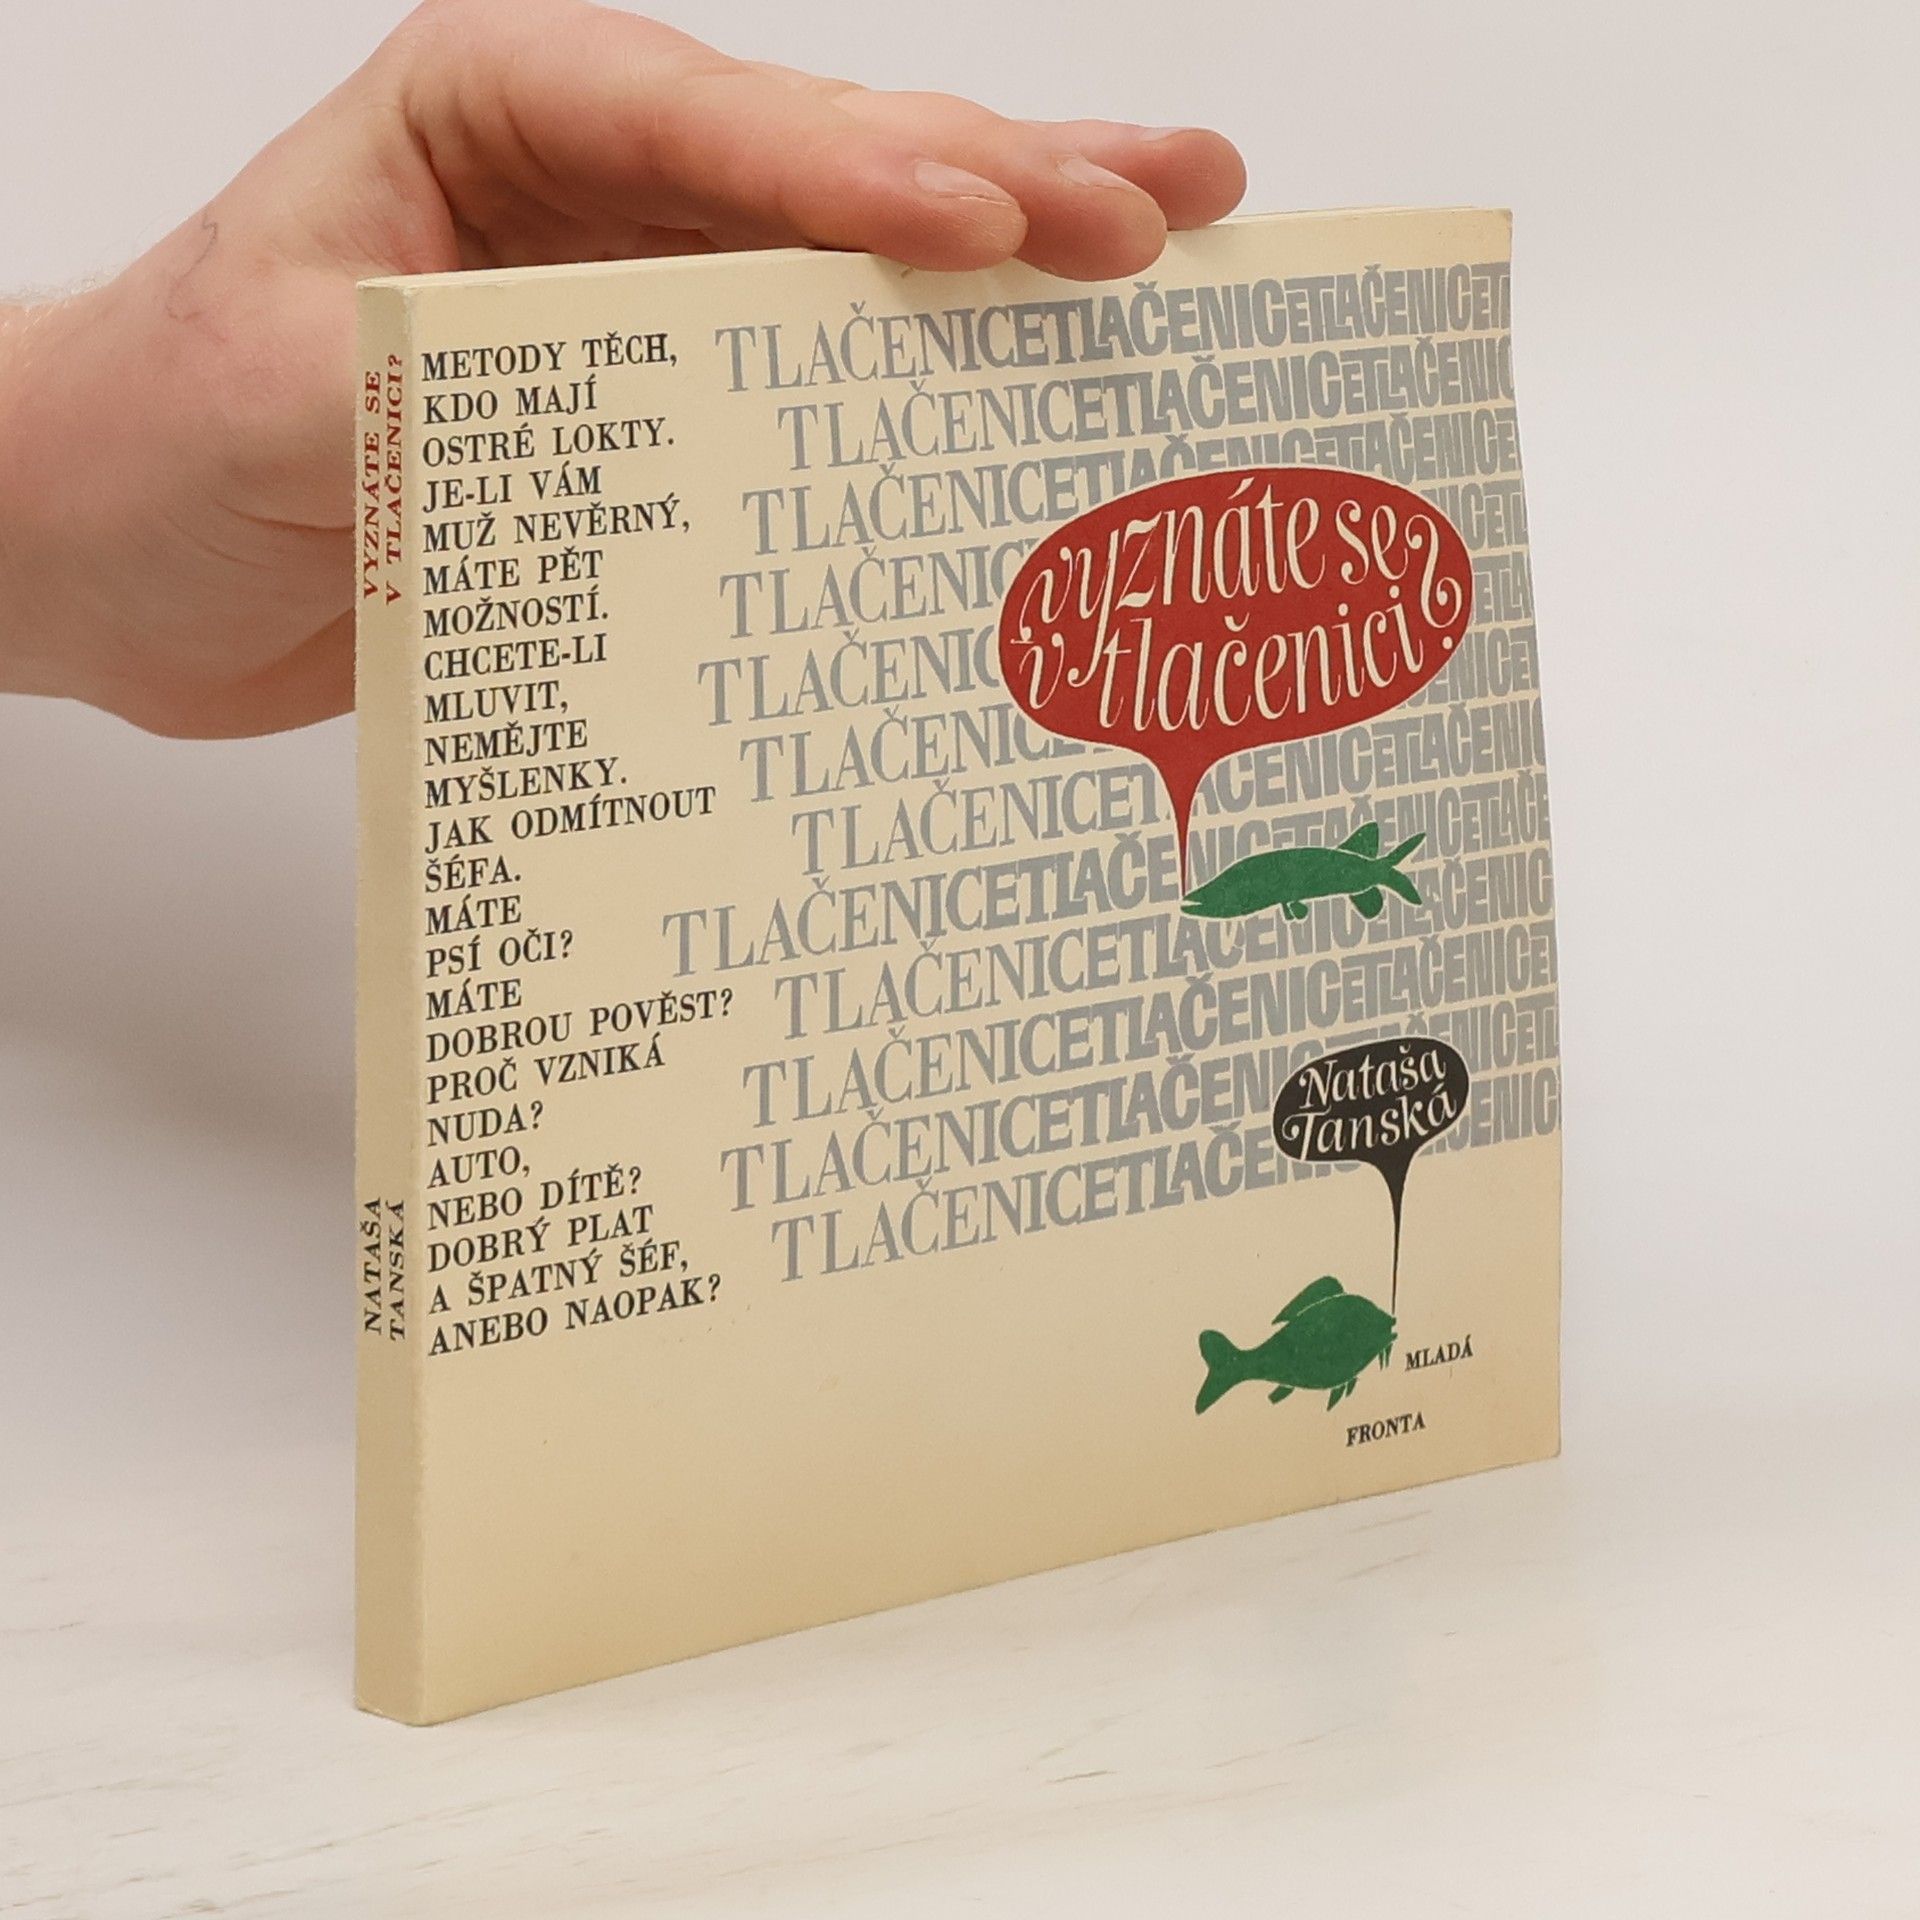 VYZNÁTE SE
V TLAČENICI?
NATAŠA
TANSKÁ
METODY TĚCH,
KDO MAJÍ
OSTRÉ LOKTY.
JE-LI VÁM
MUŽ NEVĚRNÝ,
MÁTE PĚT
MOŽNOSTÍ.
CHCETE-LI
MLUVIT,
NEMĚJTE
MYŠLENKY.
JAK ODMÍTNOUT
ŠÉFA.
MÁTE
PSÍ OČI?
MÁTE
DOBROU POVĚST?
PROČ VZNIKÁ
NUDA?
AUTO,
NEBO DÍTĚ?
DOBRÝ PLAT
A ŠPATNÝ ŠÉF,
ANEBO NAOPAK?
TLAČENICETLAČENICETLAČENICETL
TLAČENICETLAČENICETLAČENIC
TLAČENICETLAČENICETLAČENICE
TLAČENIC
TLAČENIC
TLAČENICE
TLAČENICETLAČENICETLAČENIC
TLAČENICETLAČENICETLAČENICETLAČE
TLAČENICETLAČENICETLAČENIC
TLAČENICETLAČENICETLAČENICE
TLAČENICETLAČENICETLAČENICETL
TLAČENICETLAČENICETLAČENIC
vyznáte se
v tlačenici?
Nataša
Tanská
MLADÁ
FRONTA